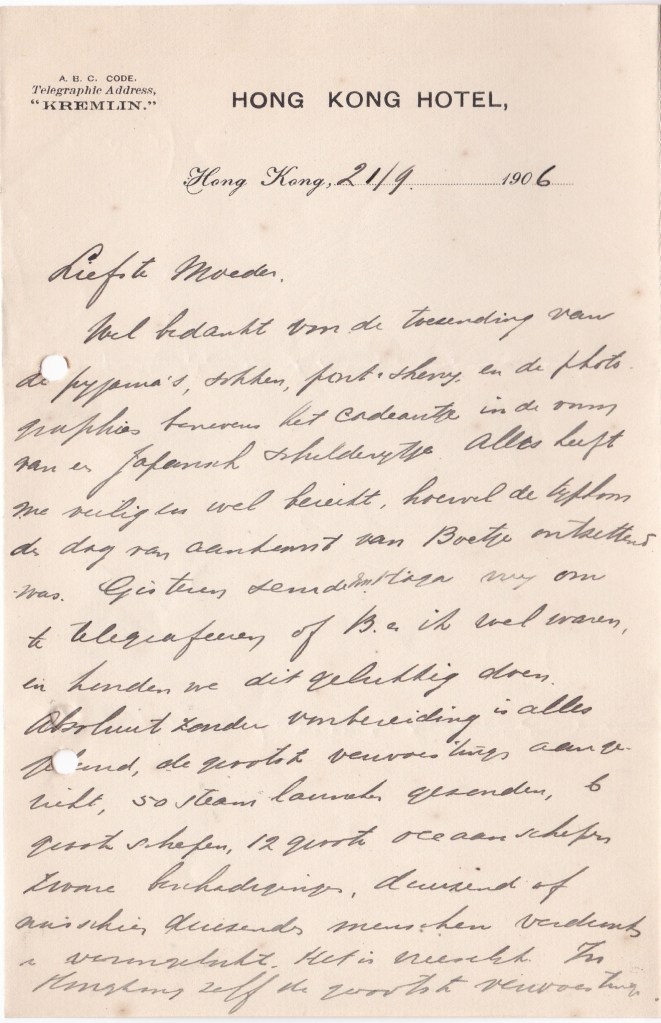 A. B. C. CODE.
Telegraphic Address,
"KREMLIN."
HONG KONG HOTEL,
Hong Kong, 21/9. 1906
Liefste Moeder.
Wel bedankt voor de toezending van
de pyjama's, sokken, port & sherry en de photo-
graphies benevens het cadeautje in de vorm
van een Japansch schilderytje. Alles heeft
me veilig en wel bereikt, hoewel de tyfoon
de dag van aankomst van Boetje ontzettend
was. Gisteren my om
te telegrafeeren of B. en ik wel waren,
en konden we dit gelukkig doen.
Absoluut zonder voorbereiding is alles
de grootste verwoestings aange-
richt, 50 steam launches gezonden, 6
groote schepen, 12 groote oceaan schepen
zware beschadigingen, duizend of
misschien duizenden menschen verdronken
& verongelukt. Het is vreeselijk. In
Hongkong zelf de grootste verwoestings